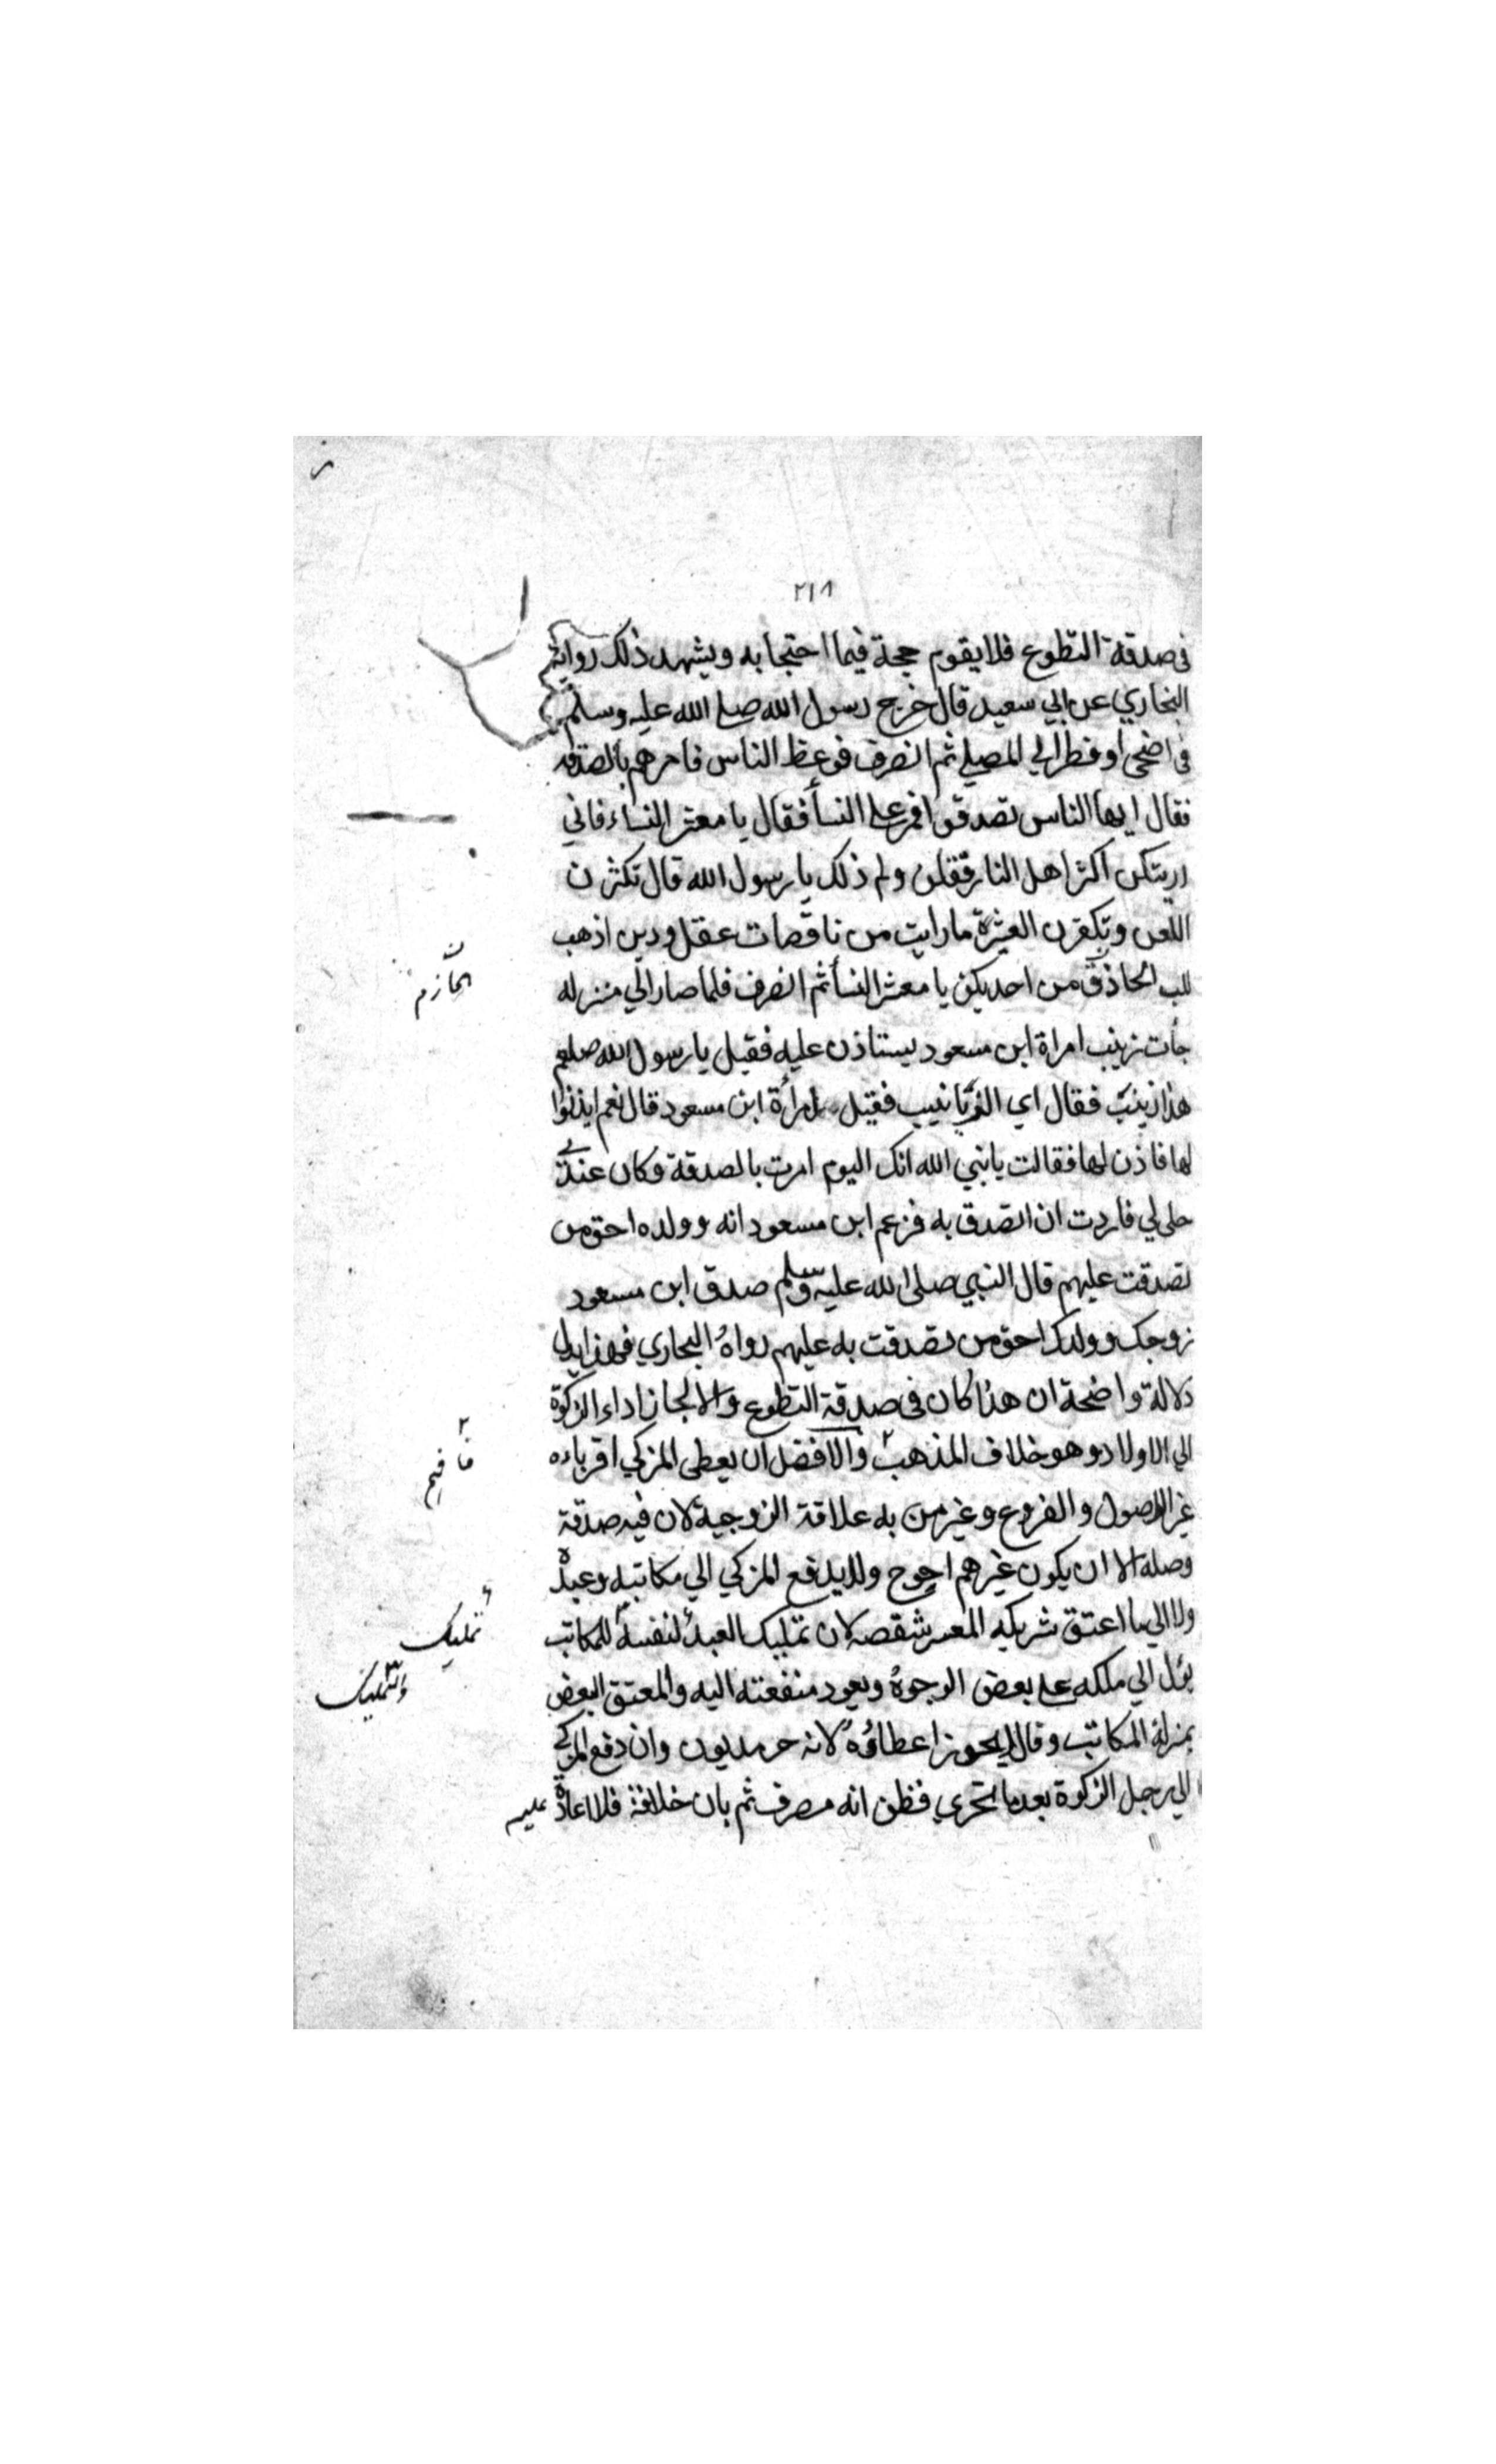 ٢١٨
في صدقة التطوع فلا يقوم حجة فيما احتجا به ويشهد ذلك رواية
البخاري عن ابي سعيد قال خرج رسول الله صلى الله عليه وسلم
في اضحى او فطر الي المصلي ثم انصرف فوعظ الناس فامرهم بالصدقه
فقال ايها الناس تصدقوا فمر علي النسأ فقال يا معشر النساء فاني
اريتكن اكثر اهل النار فقلن ولم ذلك يا رسول الله قال تكثرن
اللعن وتكفرن العشيرة ما رايت من ناقصات عقل ودين اذهب
للب الحاذق من احديكن يا معشر النسأ ثم انصرف فلما صار الي منزله
جأت زينب امراة ابن مسعود يستاذن عليه فقيل يا رسول الله صلعم
هذا زينب فقال اي الزيانيب فقيل امرأة ابن مسعود قال نعم ايذنوا
لها فاذن لها فقالت يا نبي الله انك اليوم امرت بالصدقة وكان عندي
حلى لي فاردت ان اتصدق به فزعم ابن مسعود انه وولده احق من
تصدقت عليهم قال النبي صلى الله عليه وسلم صدق ابن مسعود
زوجك وولدك احق من تصدقت به عليهم رواهُ البخاري فهذا يدل
دلالة واضحة ان هذا كان في صدقة التطوع والا لجاز اداء الزكوة
الي الاولاد وهو خلاف المذهب والافضل ان يعطى المزكي اقرباءه
غير الاصول والفروع وغير من به علاقة الزوجية لان فيه صدقة
وصلة الا ان يكون غيرهم احوج ولا يدفع المزكي الي مكاتبه وعبده
ولا الي ما اعتق شريكه المعسر شقصه لان تمليك العبد لنفسه للمكاتب
يؤل الي ملكه علي بعض الوجوه ويعود منفعته اليه والمعتق البعض
بمنزلة المكاتب وقالا يجوز اعطاؤهُ لانه حر مديون وان دفع المزكي
الي رجل الزكوة بعد ما تحري فظن انه مصرف ثم بان خلافه فلا اعادة عليه
الحازم
فافهم
تمليك
والتمليك